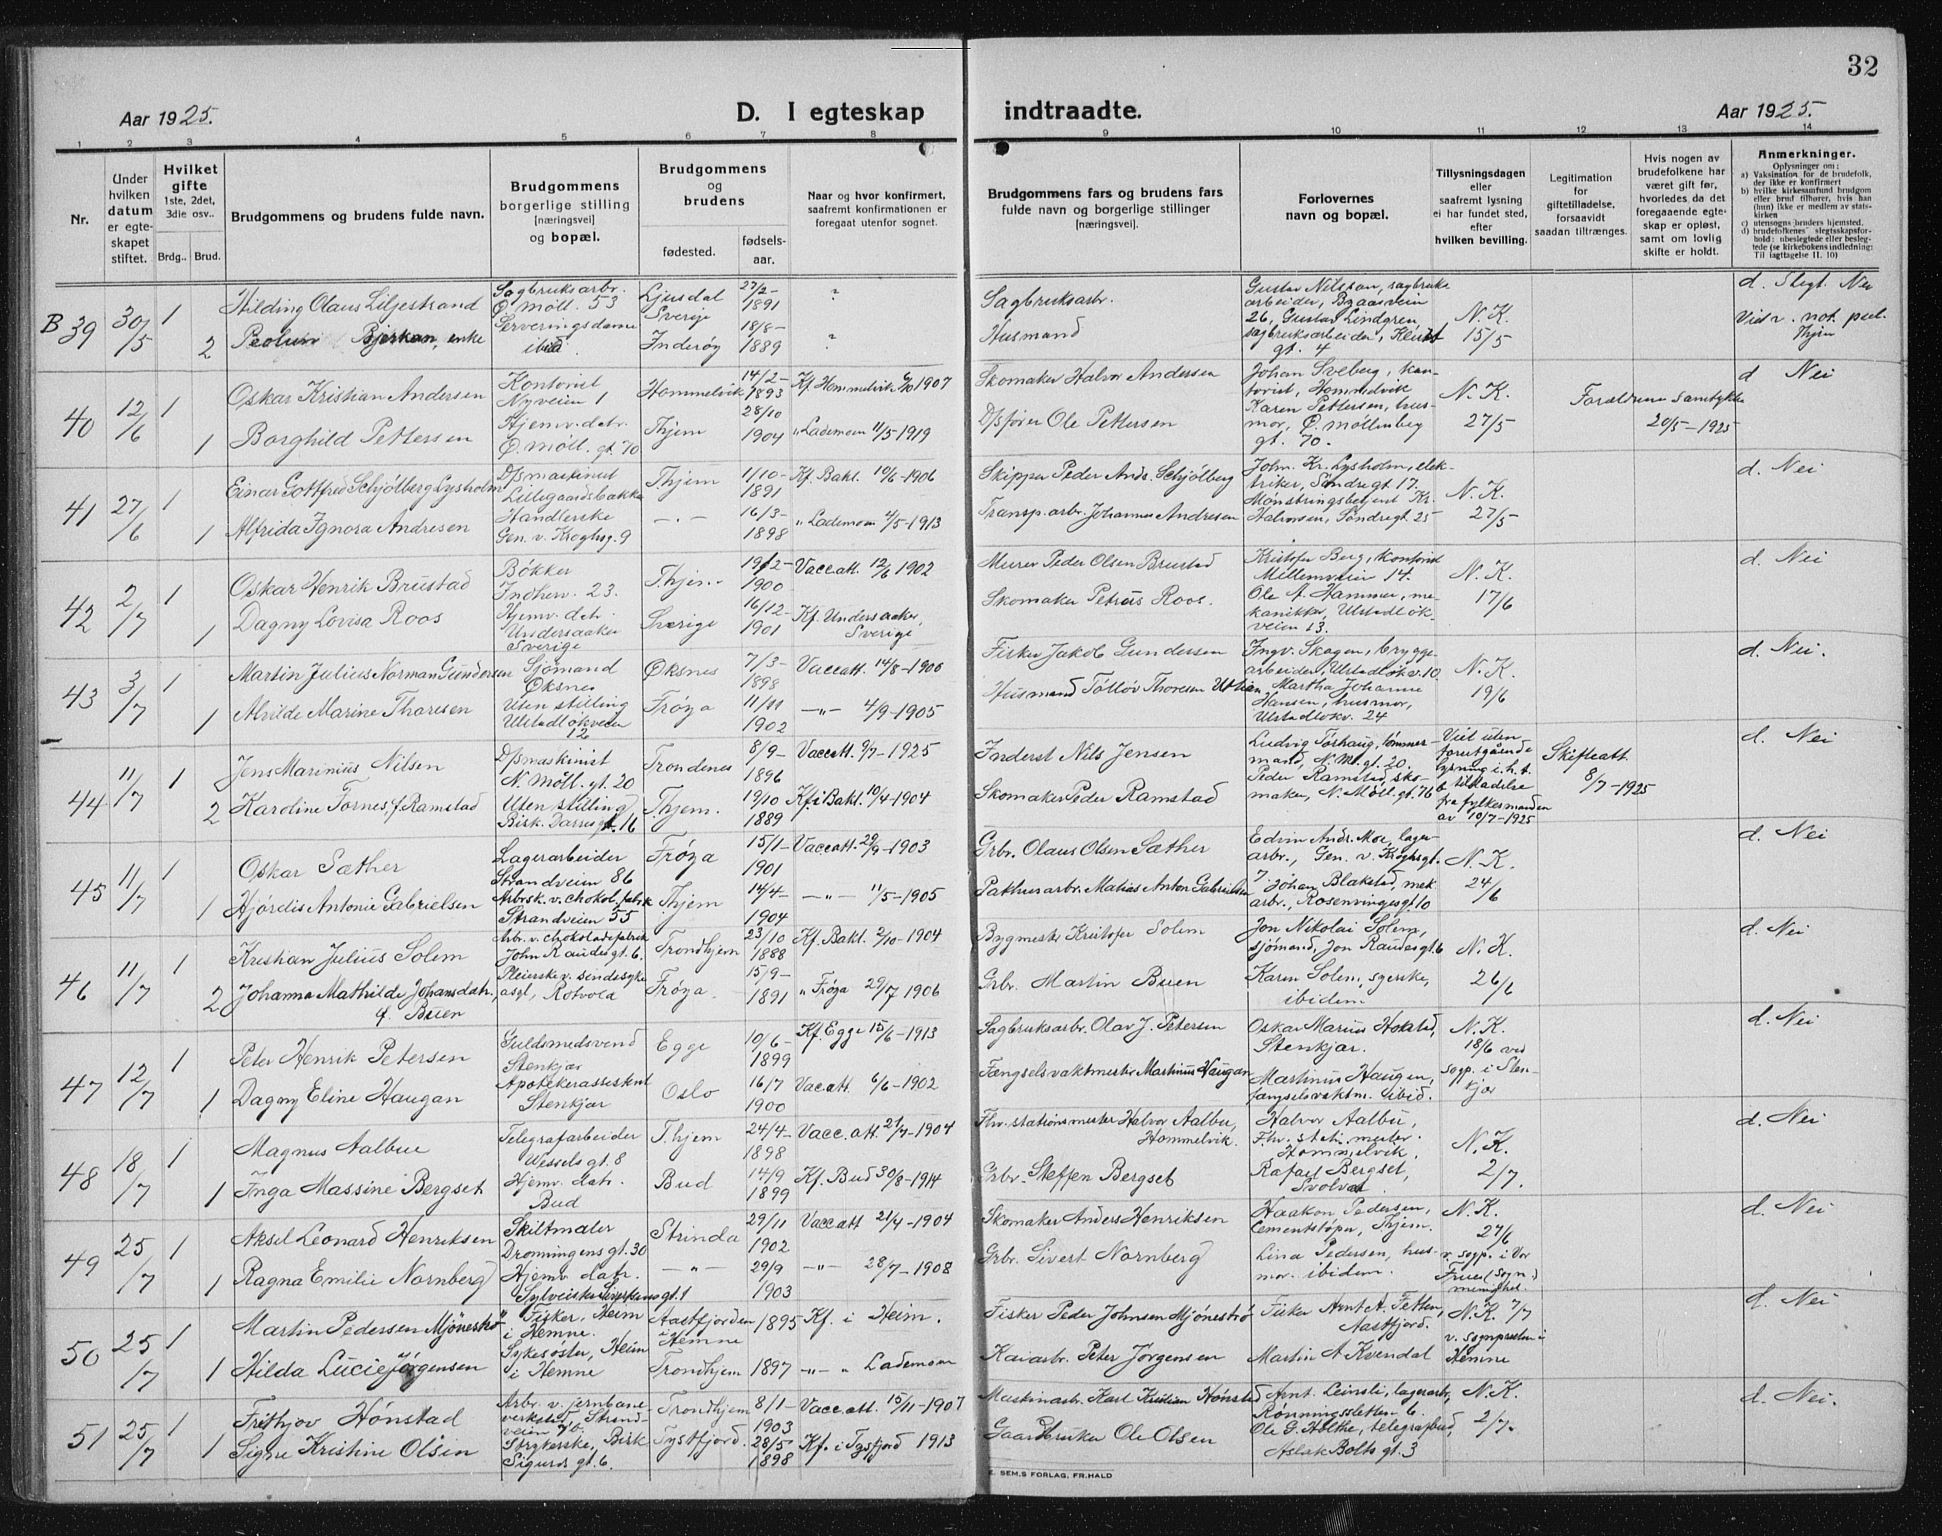 32
Aar 1925.
D. I egteskap indtraadte.
Aar 1925.
1 2 3 4 5 6 7 8 9 10 11 12 13 14
Nr.
Under hvilken datum er egteskapet stiftet.
Hvilket gifte
1ste, 2det, 3die osv..
Brdg.. Brud.
Brudgommens og brudens fulde navn.
Brudgommens borgerlige stilling [næringsvei] og bopæl.
Brudgommens og brudens
fødested. fødselsaar.
Naar og hvor konfirmert, saafremt konfirmationen er foregaat utenfor sognet.
Brudgommens fars og brudens fars fulde navn og borgerlige stillinger [næringsvei].
Forlovernes navn og bopæl.
Tillysningsdagen eller saafremt lysning ei har fundet sted, efter hvilken bevilling.
Legitimation for giftetilladelse, forsaavidt saadan tiltrænges.
Hvis nogen av brudefolkene har været gift før, hvorledes da det foregaaende egteskap er opløst, samt om lovlig skifte er holdt.
Anmerkninger.
Oplysninger om:
a) Vaksination for de brudefolk, der ikke er konfirmert
b) hvilke kirkesamfund brudgom eller brud tilhører, hvis han (hun) ikke er medlem av statskirken
c) utensogns bruders hjemsted.
d) brudefolkenes slegtsskapsforhold: ubeslegtede eller beslegtede (se kirkebokens indledning: Til iagttagelse II. 10)
B 39 30/5 1 Hilding Olaus Liljestrand Sagbruksarbr. Ø. Möll. 53 Ljusdal Sverige 27/2-1891 ? Sagbruksarbr. Gustav Nilsson, sagbruksarbeider, Bzaasveien 26, Gustav Lindgren sagbruksarbeider, gt. 4 N.K. 15/5 d. Slegt. Nei
2 Bjerkan, enke Serveringsdame ibid Inderøy 18/8-1889 ? Husmand Vidr. not. publ. Thjem
40 12/6 1 Oskar Kristian Andersen Kontorist Nyveien 1 Hommelvik 14/2-1893 Kf. Hommelvik 6/10 1907 Skomaker Halvor Andersen Johan Sveberg, kontorist, Hommelvik N.K. 27/5 Forældrenes samtykke 20/5-1925 d Nei
1 Borghild Pettersen Hjemv. datr. Ø. Möll. gt. 70 Thjem 28/10 1904 " Lademoen 11/5-1919 D/sfører Ole Pettersen Karen Pettersen, husmor, Ø. möllenberg gt. 70.
41 27/6 1 Einar Gottfred Schjølberg Lysholm D/smaskinist Lillegaardsbakke Thjem 1/10-1891 Kf. Bakl. 10/6-1906 Skipper Peder Ands. Schjølberg John. Kr. Lysholm, elektriker, Söndregt 17. N.K. 27/5 d. Nei
1 Alfrida Ignora Andresen Handlerske Gen. v. Kroghsg. 9 -"- 16/3-1898 " Lademoen 4/5-1913 Transp.arbr. Johannes Andresen Mønstringsbetjent Kr. Halvorsen, Söndregt. 25
42 2/7 1 Oskar Henrik Brustad Bøkker Indherv. 23. Thjem 19/12-1900 Vaccatt. 12/6 1902 Murer Peder Olsen Brustad Kristofer Berg, kontorist Mellemveien 14. N.K. 17/6 d. Nei
1 Dagny Lovisa Roos Hjemv. dtr. Undersaaker Sverige Sverige 16/12-1901 Kf. Undersaaker, Sverige Skomaker Petrus Roos. Ole A. Hammer, mekanikker, Ulstadløkveien 13.
43 3/7 1 Martin Julius Norman Gundersen Sjømand Øksnes Øksnes 7/3-1898 Vaccatt. 14/8-1906 Fisker Jakob Gundersen Ingv. Skagen, bryggearbeider, Ulstadløkv. 10 N.K. 19/6 d. Nei.
1 Alvilde Marine Thoresen Uten stilling Ulstadløkveien 12 Frøya 11/11 1902 -"- 4/9-1905 Husmand Tolløv Thoresen Uttian Martha Johanne Hansen, husmor, Ulstadløkv. 24
44 11/7 1 Jens Marinius Nilsen D/smaskinist N. Möll. gt. 20 Trondenes 8/9-1896 Vaccatt. 9/7-1925 Inderst Nils Jensen Ludvig Torhaug, tømmermand, N. Ml. gt. 20. Viet uten forutgående lysning i. h. t. tilladelse fra fylkesmanden av 10/7-1925 Skifteatt 8/7-1925 d. Nei
2 Karoline Fornes, f. Ramstad Uten stilling Bisk. Darres gt. 16 Thjem. 19/10 1889 Kf. i Bakl. 10/4-1904 Skomaker Peder Ramstad Peder Ramstad, skomaker, N. Möll. gt. 76
45 11/7 1 Oskar Sæther Lagerarbeider Strandveien 86 Frøya 15/1-1901 Vaccatt. 29/9-1903 Grbr. Olaus Olsen Sæther Edvin Andr. Moe, lagerarbr., Gen. v. Kroghsgt. 7. N.K. 24/6 d. Nei
1 Hjørdis Antonie Gabrielsen Arbrsk. v. chokol. fabrik Strandveien 55 Thjem 14/4-1904 -"- 11/5-1905 Pakhusarbr. Matias Anton Gabrielsen Johan Blakstad, mek arbr., Rosenvingesgt. 10
46 11/7 1 Kristian Julius Solem Arbr. v. chokoladefabrik John Raudesgt. 6. Trondhjem 23/10 1888 Kf. Bakl. 2/10-1904 Bygmester Kristofer Solem Jon Nikolai Solem, sjömand, Jon Raudesgt. 6 N.K. 26/6 d. Nei
2 Johanna Mathilde Johansdatr., f. Buen Pleierske v. sindesyke asyl, Rotvold Frøya. 15/9-1891 " Frøya 29/7 1906 Grbr. Martin Buen Karen Solem, syerske, ibidem
47 12/7 1 Peter Henrik Petersen Guldsmedsvend Stenkjær Egge 10/6-1899 Kf. Egge 15/6-1913 Sagbruksarbr. Olav J. Petersen Oskar Marius Hokstad, Stenkjær. N.K. 18/6 ved sogp. i Stenkjær d. Nei
1 Dagny Eline Haugan Apotekerassistent Stenkjær Oslo 16/7 1900 Vaccatt. 6/6-1902 Fængselsvaktmester Martinus Haugan Martinus Haugen, fængselsvaktm. ibid.
48 18/7 1 Magnus Aalbu Telegrafarbeider Wessels gt. 8 Thjem 24/4-1898 Vacc. att. 21/7-1904 Fhv. stationsmester Halvor Aalbu, Hommelvik. Halvor Aalbu, Fhv. stati. mester. Hommelvik. N.K. 2/7. d. Nei
1 Inga Massine Bergset Hjemv. datr. Bud Bud 14/9 1899 Kf. Bud 30/8-1914 Grbr. Steffen Bergset Rafael Bergset, Svolvær
49 25/7 1 Aksel Leonard Henriksen Skiltmaler Dronningens gt. 30 Strinda 29/11 1902 Vaccatt 21/4-1904 Skomaker Anders Henriksen Haakon Pedersen, Cementstøper, Thjem. N.K. 27/6 v. sogp. i Vor Frue (sogn.) menighet. d. Nei
1 Ragna Emilie Nornberg Hjemv datr. gt. 1 -"- 29/9 1903 -"- 28/7-1908 Grbr. Sivert Nornberg Lina Pedersen, husmor. ibidem.
50 25/7 1 Martin Pedersen Mjönestrø Fisker, Heim i Hemne. Aastfjorden i Hemne 1895 Kf. i Heim. Fisker Peder Johnsen Mjönestrø Fisker Arnt A. Fetten, Aastfjord. N.K. 7/7 v. sognpresten i Hemne d. Nei
1 Hilda Lucie Jørgensen Sykesøster, Heim i Hemne Trondhjem 1897 -"- " Lademoen Kaiarbr. Peter Jørgensen Martin A Kvendal
51 25/7 1 Frithjov Hønstad Arbr. v. jernbaneverksted, Strandveien 7b. Trondhjem 8/1-1903 Vaccatt. 15/11-1907 Maskinarbr. Karl Kristian Hønstad Arnt. Leinsli, lagerarbr, Rönningsletten 6. N.K. 2/7- d. Nei.
1 Signe Kristine Olsen Strykerske, Birk Sigurds gt. 6. Tysfjord. 28/5 1898 Kf. i Tysfjord 1913 Gaardbruker Ole Olsen Ole G. Holthe, telegrafbud, Aslak Bolts gt. 3
E. SEM.S FORLAG, FR.HALD